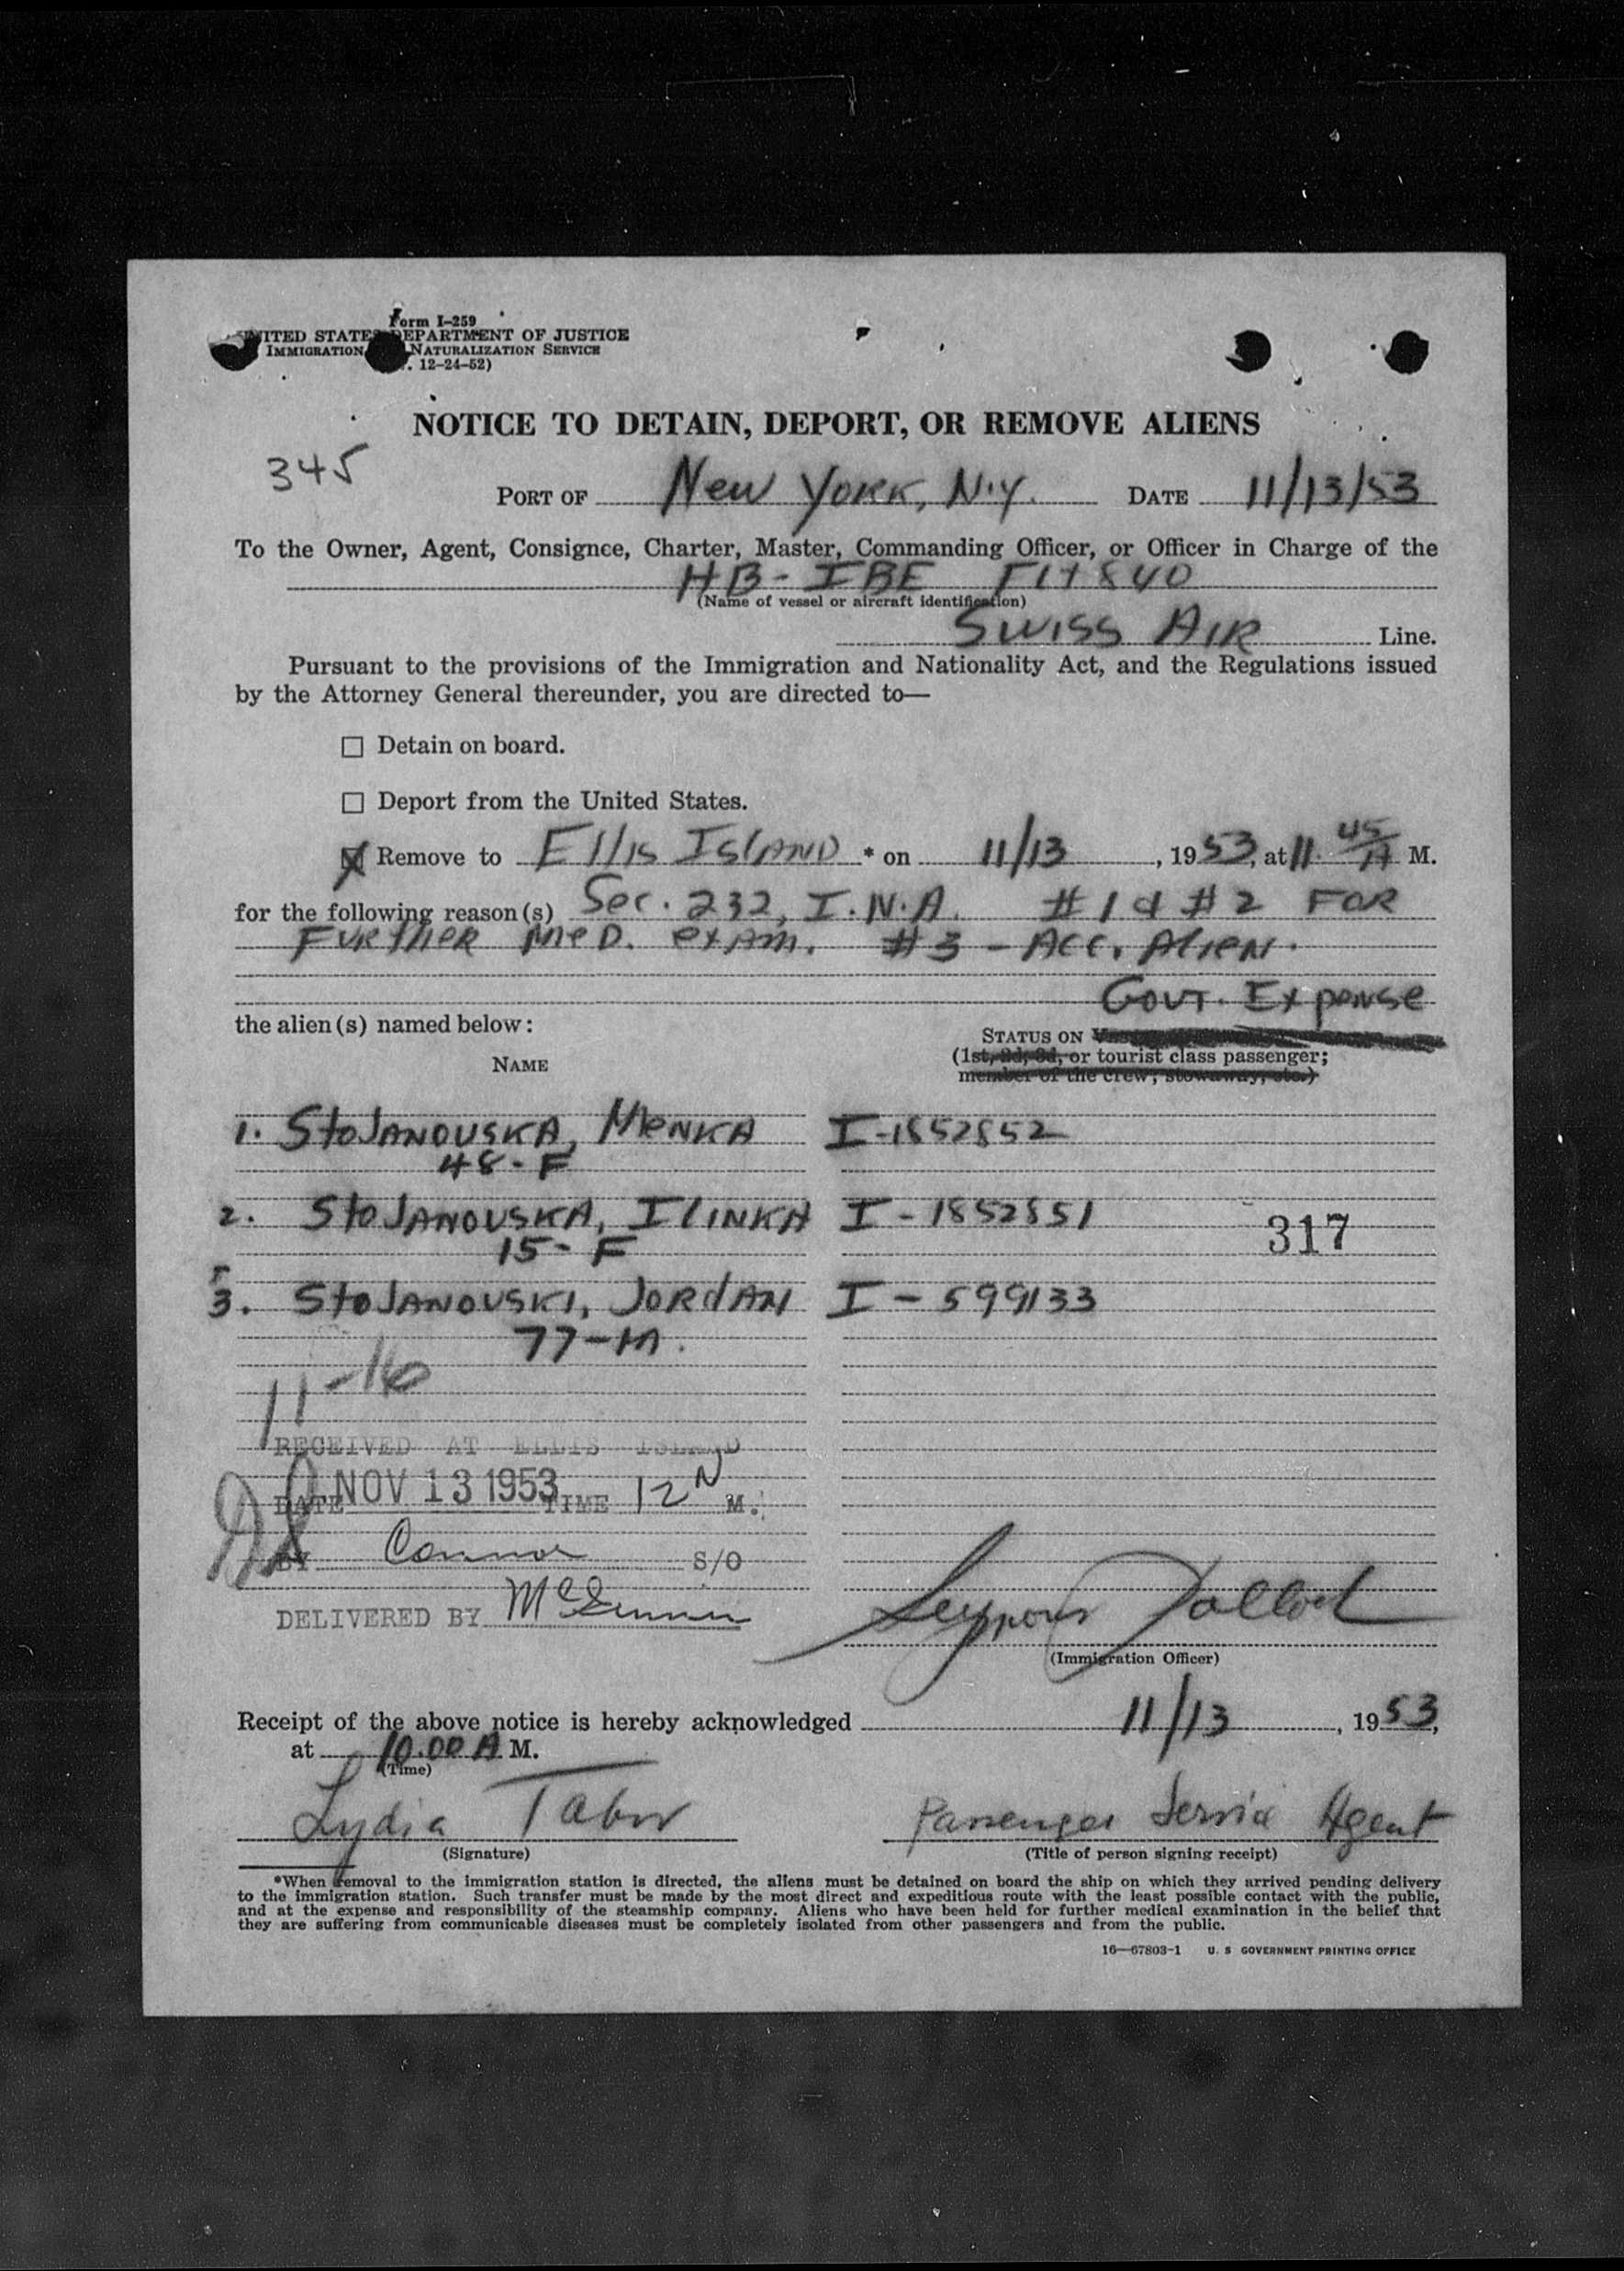 Form I-259
UNITED STATES DEPARTMENT OF JUSTICE
IMMIGRATION NATURALIZATION SERVICE
. 12-24-52)
NOTICE TO DETAIN, DEPORT, OR REMOVE ALIENS
345
PORT OF New York, N.Y. DATE 11/13/53
To the Owner, Agent, Consignee, Charter, Master, Commanding Officer, or Officer in Charge of the
HB-IBE Flt 840
(Name of vessel or aircraft identification)
Swiss Air Line.
Pursuant to the provisions of the Immigration and Nationality Act, and the Regulations issued
by the Attorney General thereunder, you are directed to—
☐ Detain on board.
☐ Deport from the United States.
☒ Remove to Ellis Island * on 11/13, 1953, at 11.45 A M.
for the following reason(s) Sec. 232, I.N.A. #1 & #2 For
Further Med. Exam. #3 - Acc. Alien.
Govt. Expense
the alien(s) named below:
STATUS ON
NAME
(1st, 2d, 3d, or tourist class passenger;
member of the crew, stowaway, etc.)
1. Stojanovska, Menka I-1852852
48-F
2. Stojanovska, Ilinka I-1852851
15-F
317
3. Stojanovski, Jordan I-599133
77-M.
11-16
RECEIVED AT ELLIS ISLAND
DATE NOV 13 1953 TIME 12 N M.
BY Connor S/O
DELIVERED BY
Seymour
(Immigration Officer)
Receipt of the above notice is hereby acknowledged 11/13, 1953,
at 10.00 A M.
(Time)
Lydia Tabor
Passenger Service Agent
(Signature)
(Title of person signing receipt)
*When removal to the immigration station is directed, the aliens must be detained on board the ship on which they arrived pending delivery
to the immigration station. Such transfer must be made by the most direct and expeditious route with the least possible contact with the public,
and at the expense and responsibility of the steamship company. Aliens who have been held for further medical examination in the belief that
they are suffering from communicable diseases must be completely isolated from other passengers and from the public.
16—67803-1 U. S GOVERNMENT PRINTING OFFICE